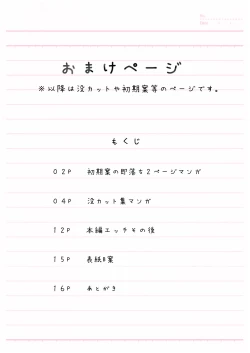 おまけページ
※以降は没カットや初期案等のページです。
もくじ
02P 初期案の即落な2ページマンガ
04P 没カット集マンガ
12P 本編エッチその後
15P 表紙B案
16P あとがき